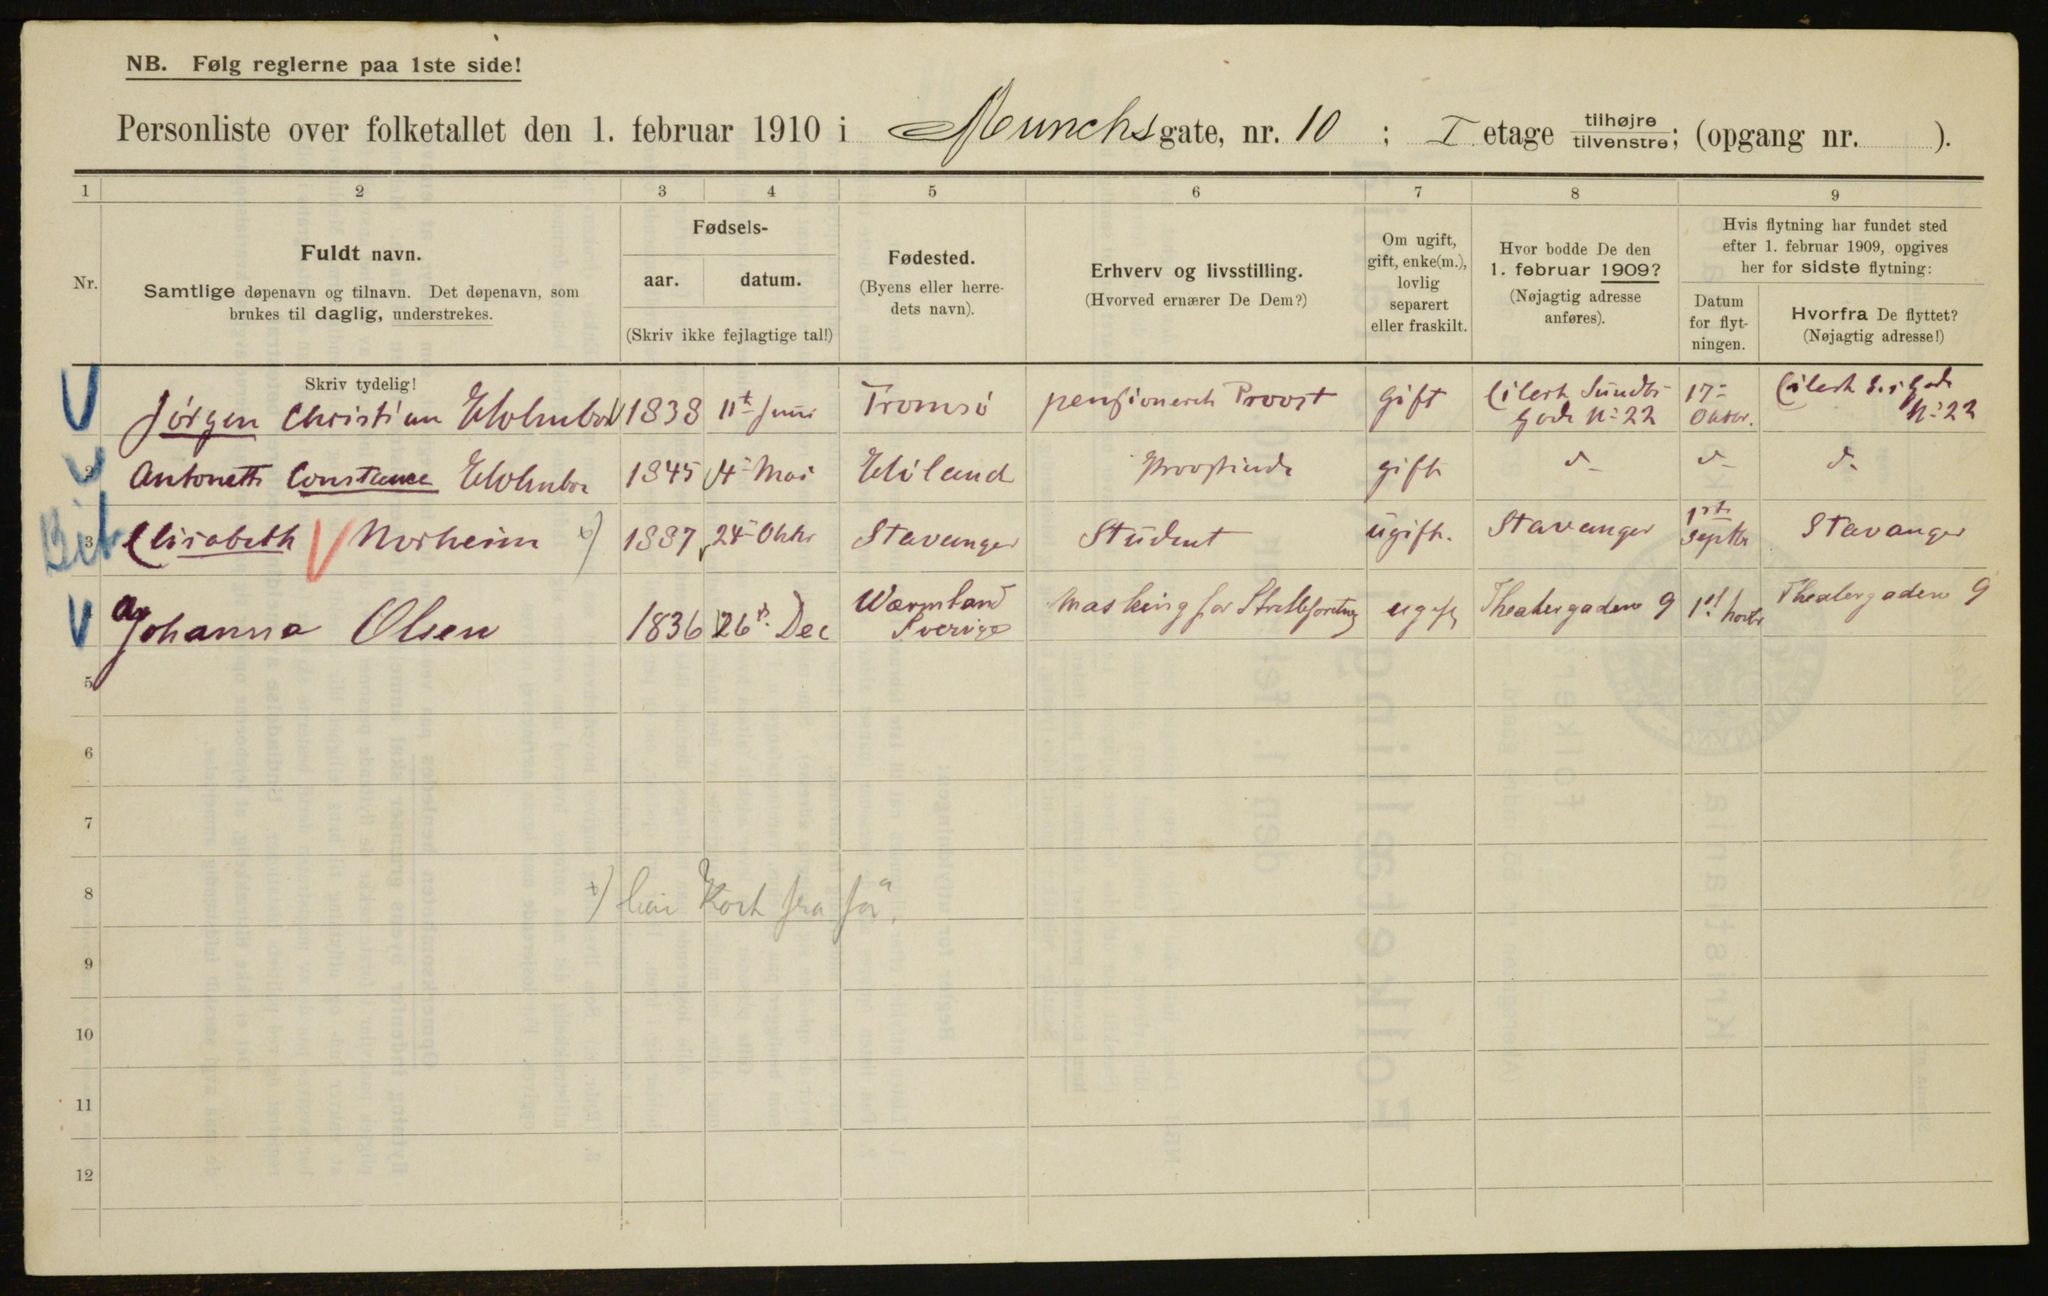 NB. Følg reglerne paa 1ste side!
Personliste over folketallet den 1. februar 1910 i Munchsgate, nr. 10 ; I etage tilhøjre/tilvenstre; (opgang nr. ).
1 2 3 4 5 6 7 8 9
Nr.
Fuldt navn.
Samtlige døpenavn og tilnavn. Det døpenavn, som
brukes til daglig, understrekes.
Fødsels-
aar. datum.
(Skriv ikke fejlagtige tal!)
Fødested.
(Byens eller herre-
dets navn).
Erhverv og livsstilling.
(Hvorved ernærer De Dem?)
Om ugift,
gift, enke(m.),
lovlig
separert
eller fraskilt.
Hvor bodde De den
1. februar 1909?
(Nøjagtig adresse
anføres).
Hvis flytning har fundet sted
efter 1. februar 1909, opgives
her for sidste flytning:
Datum
for flyt-
ningen.
Hvorfra De flyttet?
(Nøjagtig adresse!)
Skriv tydelig!
V Jørgen Christian Holmboe 1838 11te Juni Tromsø pensioneret Provst gift Eilert Sundts Gade No 22 17de Oktbr. Eilert S. Gade No 22
V 2 Antonette Constance Holmboe 1845 14 Mai Provstinde gift d. d. d.
3 Elisabeth V Norheim x) 1887 24 Oktbr Stavanger Student ugift. Stavanger 1ste Septbr Stavanger
V Johanna Olsen 1836 26 Dec Wærmland Sverige ugift Theatergaden 9 1st Theatergaden 9
5
6
7
8 x) har Kort fra før.
9
10
11
12